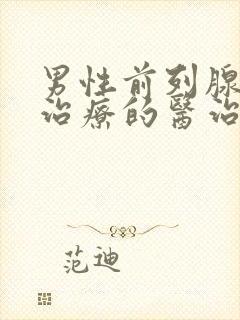 男性前列腺
治療的醫治
范迪